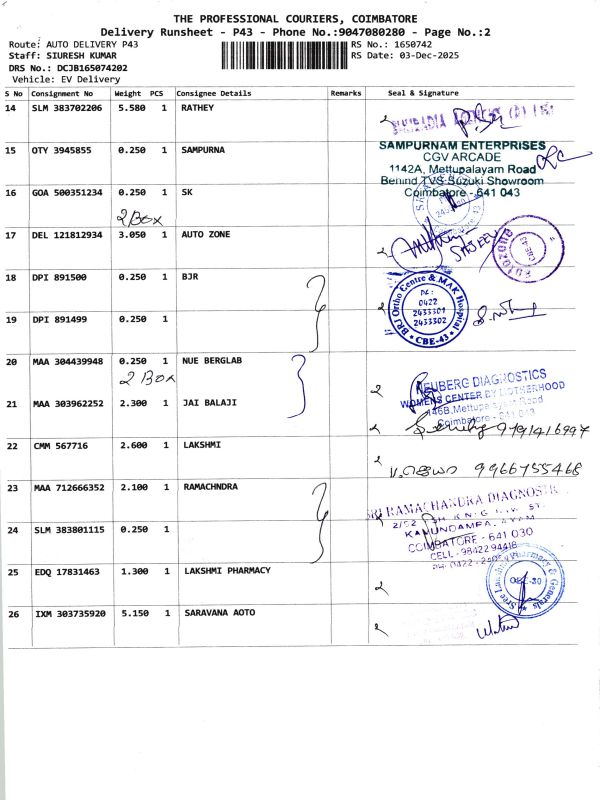 THE PROFESSIONAL COURIERS, COIMBATORE
Delivery Runsheet - P43 - Phone No.:9047080280 - Page No.:2
Route: AUTO DELIVERY P43 RS No.: 1650742
Staff: SIURESH KUMAR RS Date: 03-Dec-2025
DRS No.: DCJB165074202
Vehicle: EV Delivery
S No Consignment No Weight PCS Consignee Details Remarks Seal & Signature
14 SLM 383702206 5.580 1 RATHEY
15 OTY 3945855 0.250 1 SAMPURNA
SAMPURNAM ENTERPRISES
CGV ARCADE
1142A, Mettupalayam Road
Behind TVS Suzuki Showroom
Coimbatore - 641 043
16 GOA 500351234 0.250 1 SK
2 Box
17 DEL 121812934 3.050 1 AUTO ZONE
Autozone
CBE-43
18 DPI 891500 0.250 1 BJR
BRJ Ortho Centre & MAK Hospital
0422
2433301
2433302
* CBE-43 *
19 DPI 891499 0.250 1
20 MAA 304439948 0.250 1 NUE BERGLAB
2 Box
NEUBERG DIAGNOSTICS
WOMENS CENTER BY MOTHERHOOD
146B, Mettupalayam Road
Coimbatore - 641 043
21 MAA 303962252 2.300 1 JAI BALAJI
9791416997
22 CMM 567716 2.600 1 LAKSHMI
9966755468
23 MAA 712666352 2.100 1 RAMACHNDRA
SRI RAMACHANDRA DIAGNOSTIC
KAVUNDAMPALAYAM
COIMBATORE - 641 030
CELL - 98422 94418
24 SLM 383801115 0.250 1
25 EDQ 17831463 1.300 1 LAKSHMI PHARMACY
Sree Lakshmi Pharmacy & Generals
26 IXM 303735920 5.150 1 SARAVANA AOTO